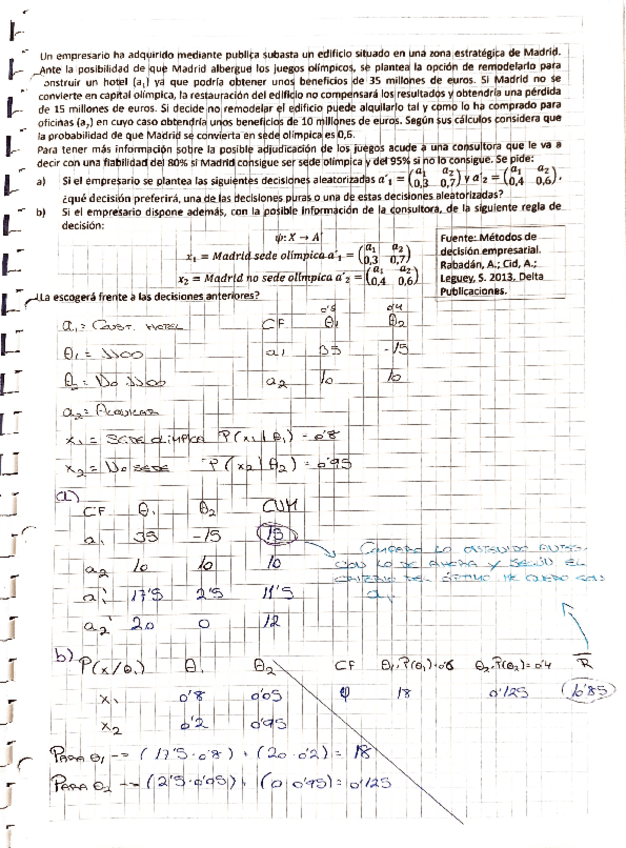 Un empresario ha adquirido mediante publica subasta un edificio situado en una zona estratégica de Madrid.
Ante la posibilidad de que Madrid albergue los juegos olímpicos, se plantea la opción de remodelarlo para
onstruir un hotel (a₁) ya que podría obtener unos beneficios de 35 millones de euros. Si Madrid no se
convierte en capital olímpica, la restauración del edificio no compensará los resultados y obtendría una pérdida
de 15 millones de euros. Si decide no remodelar el edificio puede alquilarlo tal y como lo ha comprado para
oficinas (a₂) en cuyo caso obtendría unos beneficios de 10 millones de euros. Según sus cálculos considera que
la probabilidad de que Madrid se convierta en sede olímpica es 0,6.
Para tener más información sobre la posible adjudicación de los juegos acude a una consultora que le va a
decir con una fiabilidad del 80% si Madrid consigue ser sede olímpica y del 95% si no lo consigue. Se pide:
a) Si el empresario se plantea las siguientes decisiones aleatorizadas a'₁ = (a₁ a₂ / 0,3 0,7) y a'₂ = (a₁ a₂ / 0,4 0,6),
¿qué decisión preferirá, una de las decisiones puras o una de estas decisiones aleatorizadas?
b) Si el empresario dispone además, con la posible información de la consultora, de la siguiente regla de
decisión:
ψ: X → A
x₁ = Madrid sede olímpica a'₁ = (a₁ a₂ / 0,3 0,7)
x₂ = Madrid no sede olímpica a'₂ = (a₁ a₂ / 0,4 0,6)
Fuente: Métodos de
decisión empresarial.
Rabadán, A.; Cid, A.;
Leguey, S. 2013. Delta
Publicaciones.
¿La escogerá frente a las decisiones anteriores?
a₁ = Const. HOTEL
θ₁ = JJOO
θ₂ = No JJOO
a₂ = Alquilar
0'6 0'4
CF θ₁ θ₂
a₁ 35 -15
a₂ 10 10
x₁ = SEDE OLIMPICA P(x₁/θ₁) = 0'8
x₂ = No SEDE P(x₂/θ₂) = 0'95
a)
CF θ₁ θ₂ CUM
a₁ 35 -15 15
a₂ 10 10 10
a₁' 17'5 2'5 11'5
a₂' 20 0 12
COMPARO LO OBTENIDO ANTES
CON LO DE AHORA Y SEGÚN EL
CRITERIO DEL ÓPTIMO ME QUEDO CON
a₁
b) P(x/θ) θ₁ θ₂
x₁ 0'8 0'05
x₂ 0'2 0'95
CF θ₁·P(θ₁)=0'6 θ₂·P(θ₂)=0'4 R
φ 18 0'125 10'85
PARA θ₁ → (17'5·0'8) + (20·0'2) = 18
PARA θ₂ → (2'5·0'05) + (0·0'95) = 0'125